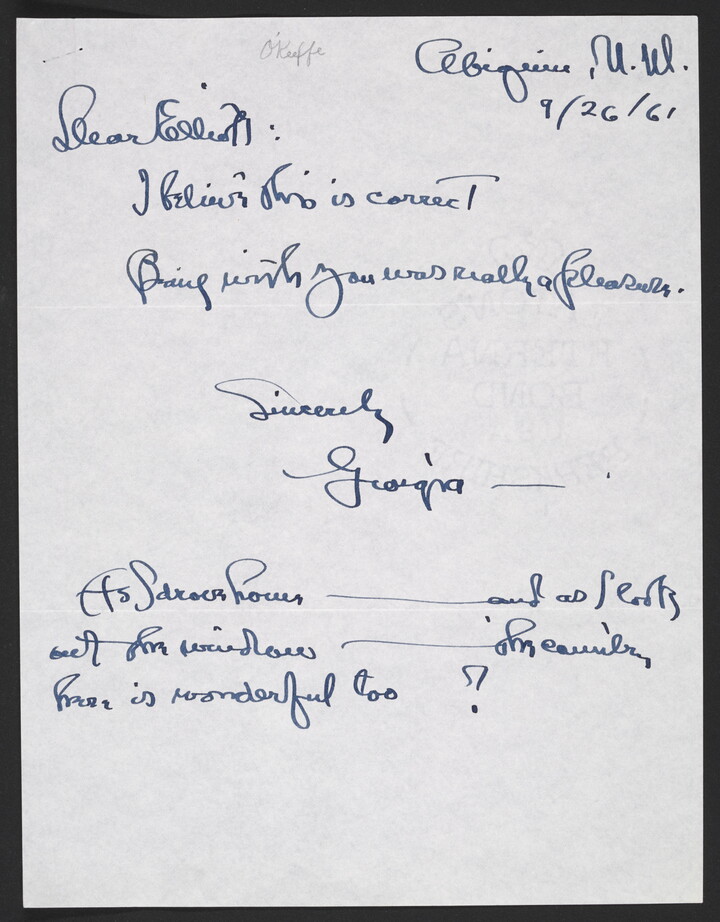 O'Keeffe
Abiquiu, N.M.
9/26/61
Dear Elliott:
I believe this is correct
Being with you was really a pleasure.
Sincerely
Georgia —
As I drove home ——— and as I look
out the window ——— the country
here is wonderful too ?